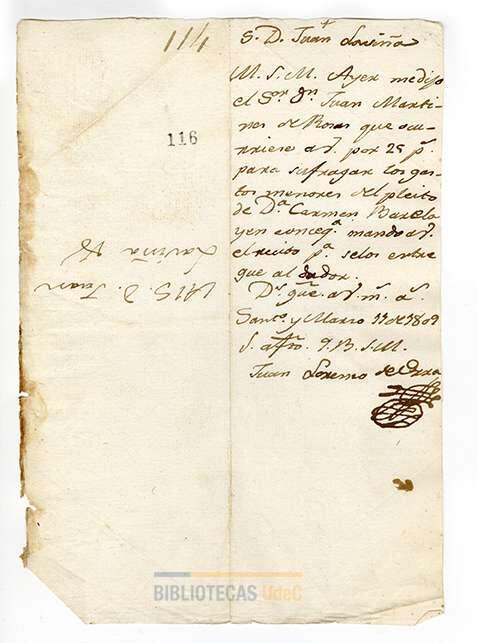 114
116
S. D. Juan Laviña
M. S. M. Ayer me dijo
el Sor. Dn. Juan Marti-
nes de Rosas que ocu-
rriese a V. por 25 p.
para sufragar los gas-
tos menores del pleito
de Da. Carmen Barela
y en conseq.a mando a V.
el recivo pa. se los entre
gue al dador.
Ds. gue. a V. m. as.
Santo. y Marzo 11 de 1809
S. affto. Q. B. S. M.
Juan Lorenso de Urra
Al S. D. Juan
Laviña
BIBLIOTECAS UdeC